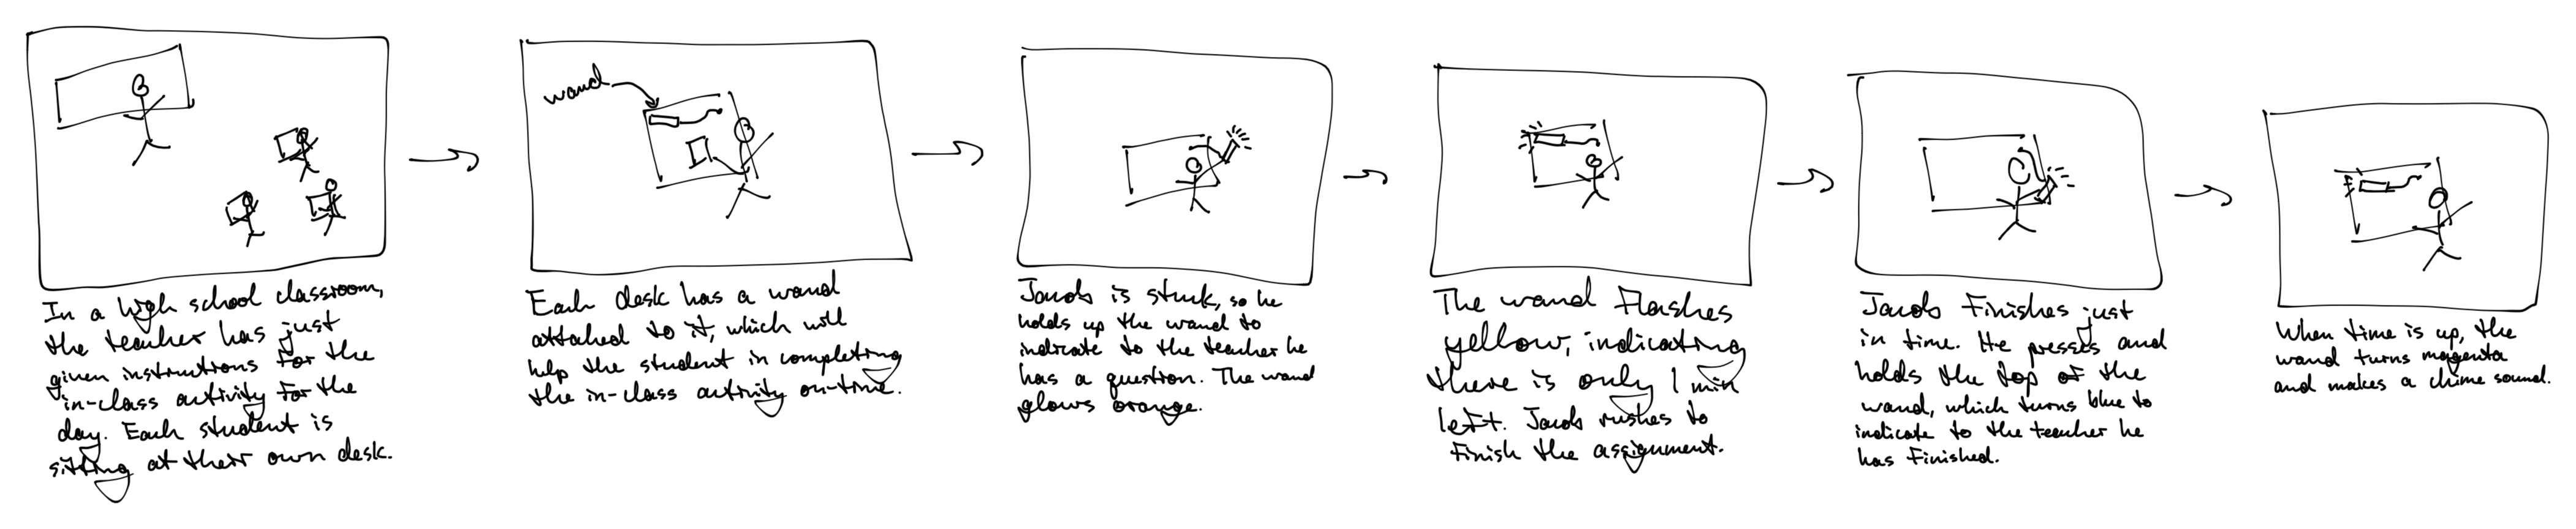 In a high school classroom,
the teacher has just
given instructions for the
in-class activity for the
day. Each student is
sitting at their own desk.
wand
Each desk has a wand
attached to it, which will
help the student in completing
the in-class activity on-time.
Jacob is stuck, so he
holds up the wand to
indicate to the teacher he
has a question. The wand
glows orange.
The wand flashes
yellow, indicating
there is only 1 min
left. Jacob rushes to
finish the assignment.
Jacob finishes just
in time. He presses and
holds the top of the
wand, which turns blue to
indicate to the teacher he
has finished.
When time is up, the
wand turns magenta
and makes a chime sound.